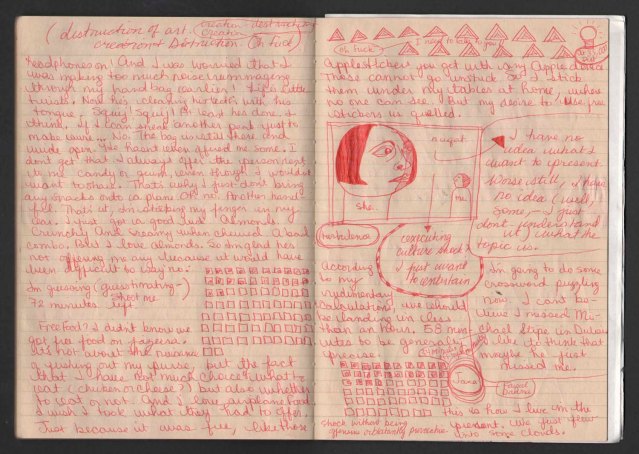 (distruction of art. creation - destruction
creation & Distruction. (Oh fuck)
Headphones on! And I was worried that I
was making too much noise rummaging
through my handbag earlier! Life's little
twists. Now he's cleaning his teeth with his
tongue. Squij! Squij! At least he's done, I
think. If I can sneak another peek just to
make sure.... No. The bag is still there and
wide open. He hasn't offered me some. I
don't get that. I always offer the person next
to me candy or gum, even though I wouldn't
want to share. That's why I just don't bring
any snacks onto a plane. OR no. Another hand
full. That's it, I'm sticking my finger in my
ear. I just got a good look. Almonds.
Crunchy And creamy when chewed. A bad
combo. But I love almonds. So I'm glad he's
not offering me any because it would have
been difficult to say no.
I'm guessing (guesstimating-)
72 minutes left. shoot me
Free food? I didn't know we
got free food on
It's not about the
of whipping out my purse, but the fact
that I have not much choice what to
eat (chicken or cheese?) but also whether
to eat or not. And I love airplane food.
I wish I took what they had to offer.
Just because it was free, like those
(Oh fuck) I need to talk to you
at 35,000 feet
Apple stickers you get with any Apple device.
These cannot go unstuck so I stick
them under my tables at home, where
no one can see. But my desire to use free
stickers is quelled.
nugat
She.
me
I have no
idea what I
want to present.
Worse still, I have
no idea (well
some, - I just
don't understand
it) what the
topic is.
turbulence
executing
culture shock?
I just want
to entertain
According
to my
rudimentary
calculations, we should
be landing in less
than an hour. 58 min-
utes to be generally
precise.
I'm going to do some
crossword puzzling
now. I can't be-
lieve I missed Mi-
chael Stipe in Dubai
I like to think that
maybe he just
missed me.
Jana
this is how I live in the
present. We just flew
into some clouds.
shock without being
offensive or blatantly provocative